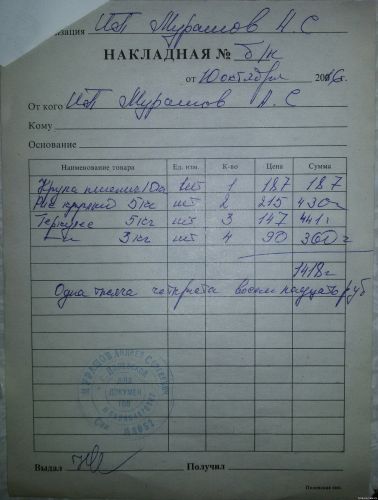 изация ИП Мурашов А.С
НАКЛАДНАЯ № б/н
от 10 октября 2016г.
От кого ИП Мурашов А.С
Кому
Основание
Наименование товара Ед. изм. К-во Цена Сумма
Крупа 10кг шт 1 187 187
Рис круглый 5кг шт 2 215 430
Геркулес 5кг шт 3 147 441
3кг шт 4 90 360
1418
Одна тысяча четыреста восемнадцать руб
МУРАШОВ АНДРЕЙ
ДЛЯ
ДОКУМЕН
ТОВ
Выдал Получил